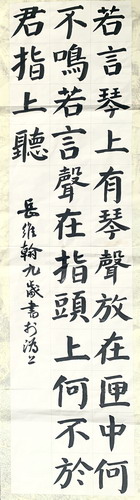 若言琴上有琴聲放在匣中何
不鳴若言聲在指頭上何不於
君指上聽
長維翰九歲書於滬上